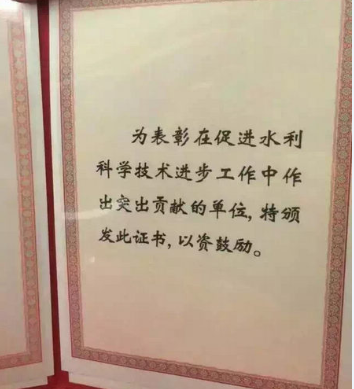 为表彰在促进水利
科学技术进步工作中作
出突出贡献的单位,特颁
发此证书,以资鼓励。